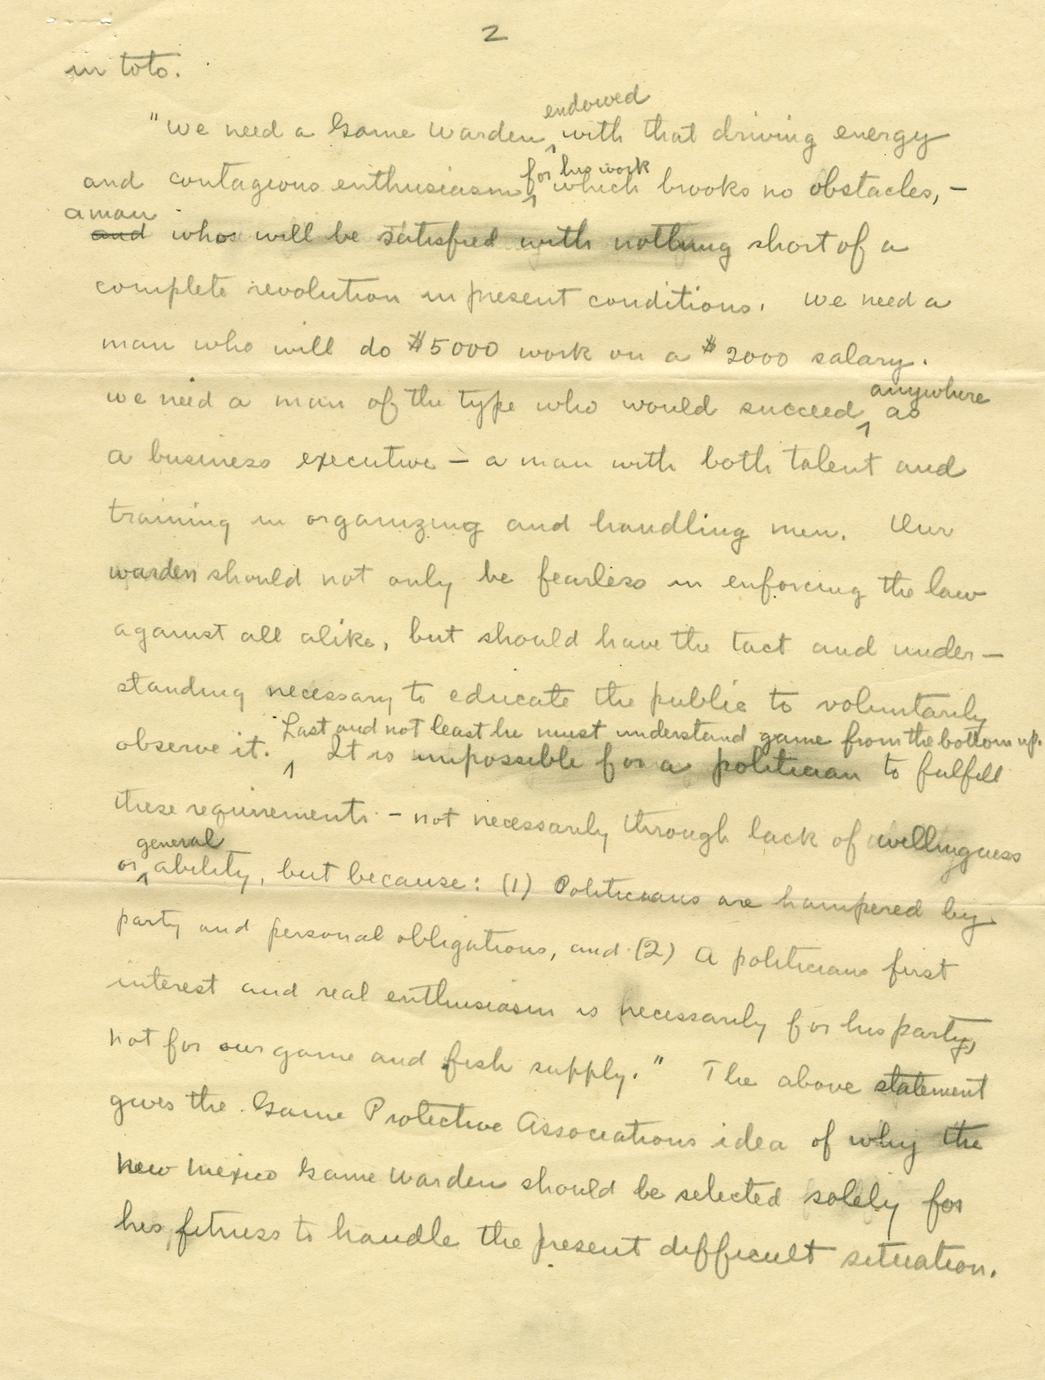 2
in toto.
endowed
"We need a Game Warden ^ with that driving energy
for his work
and contagious enthusiasm ^ which brooks no obstacles, -
a man
and who will be satisfied with nothing short of a
complete revolution in present conditions. We need a
man who will do $5000 work on a $2000 salary.
anywhere
We need a man of the type who would succeed ^ as
a business executive - a man with both talent and
training in organizing and handling men. Our
warden should not only be fearless in enforcing the law
against all alike, but should have the tact and under-
standing necessary to educate the public to voluntarily
Last and not least he must understand game from the bottom up.
observe it. ^ It is impossible for a politician to fulfill
these requirements - not necessarily through lack of willingness
general
or ^ ability, but because: (1) Politicians are hampered by
party and personal obligations, and (2) A politicians first
interest and real enthusiasm is necessarily for his party,
not for our game and fish supply." The above statement
gives the Game Protective Associations idea of why the
New Mexico Game Warden should be selected solely for
his fitness to handle the present difficult situation.